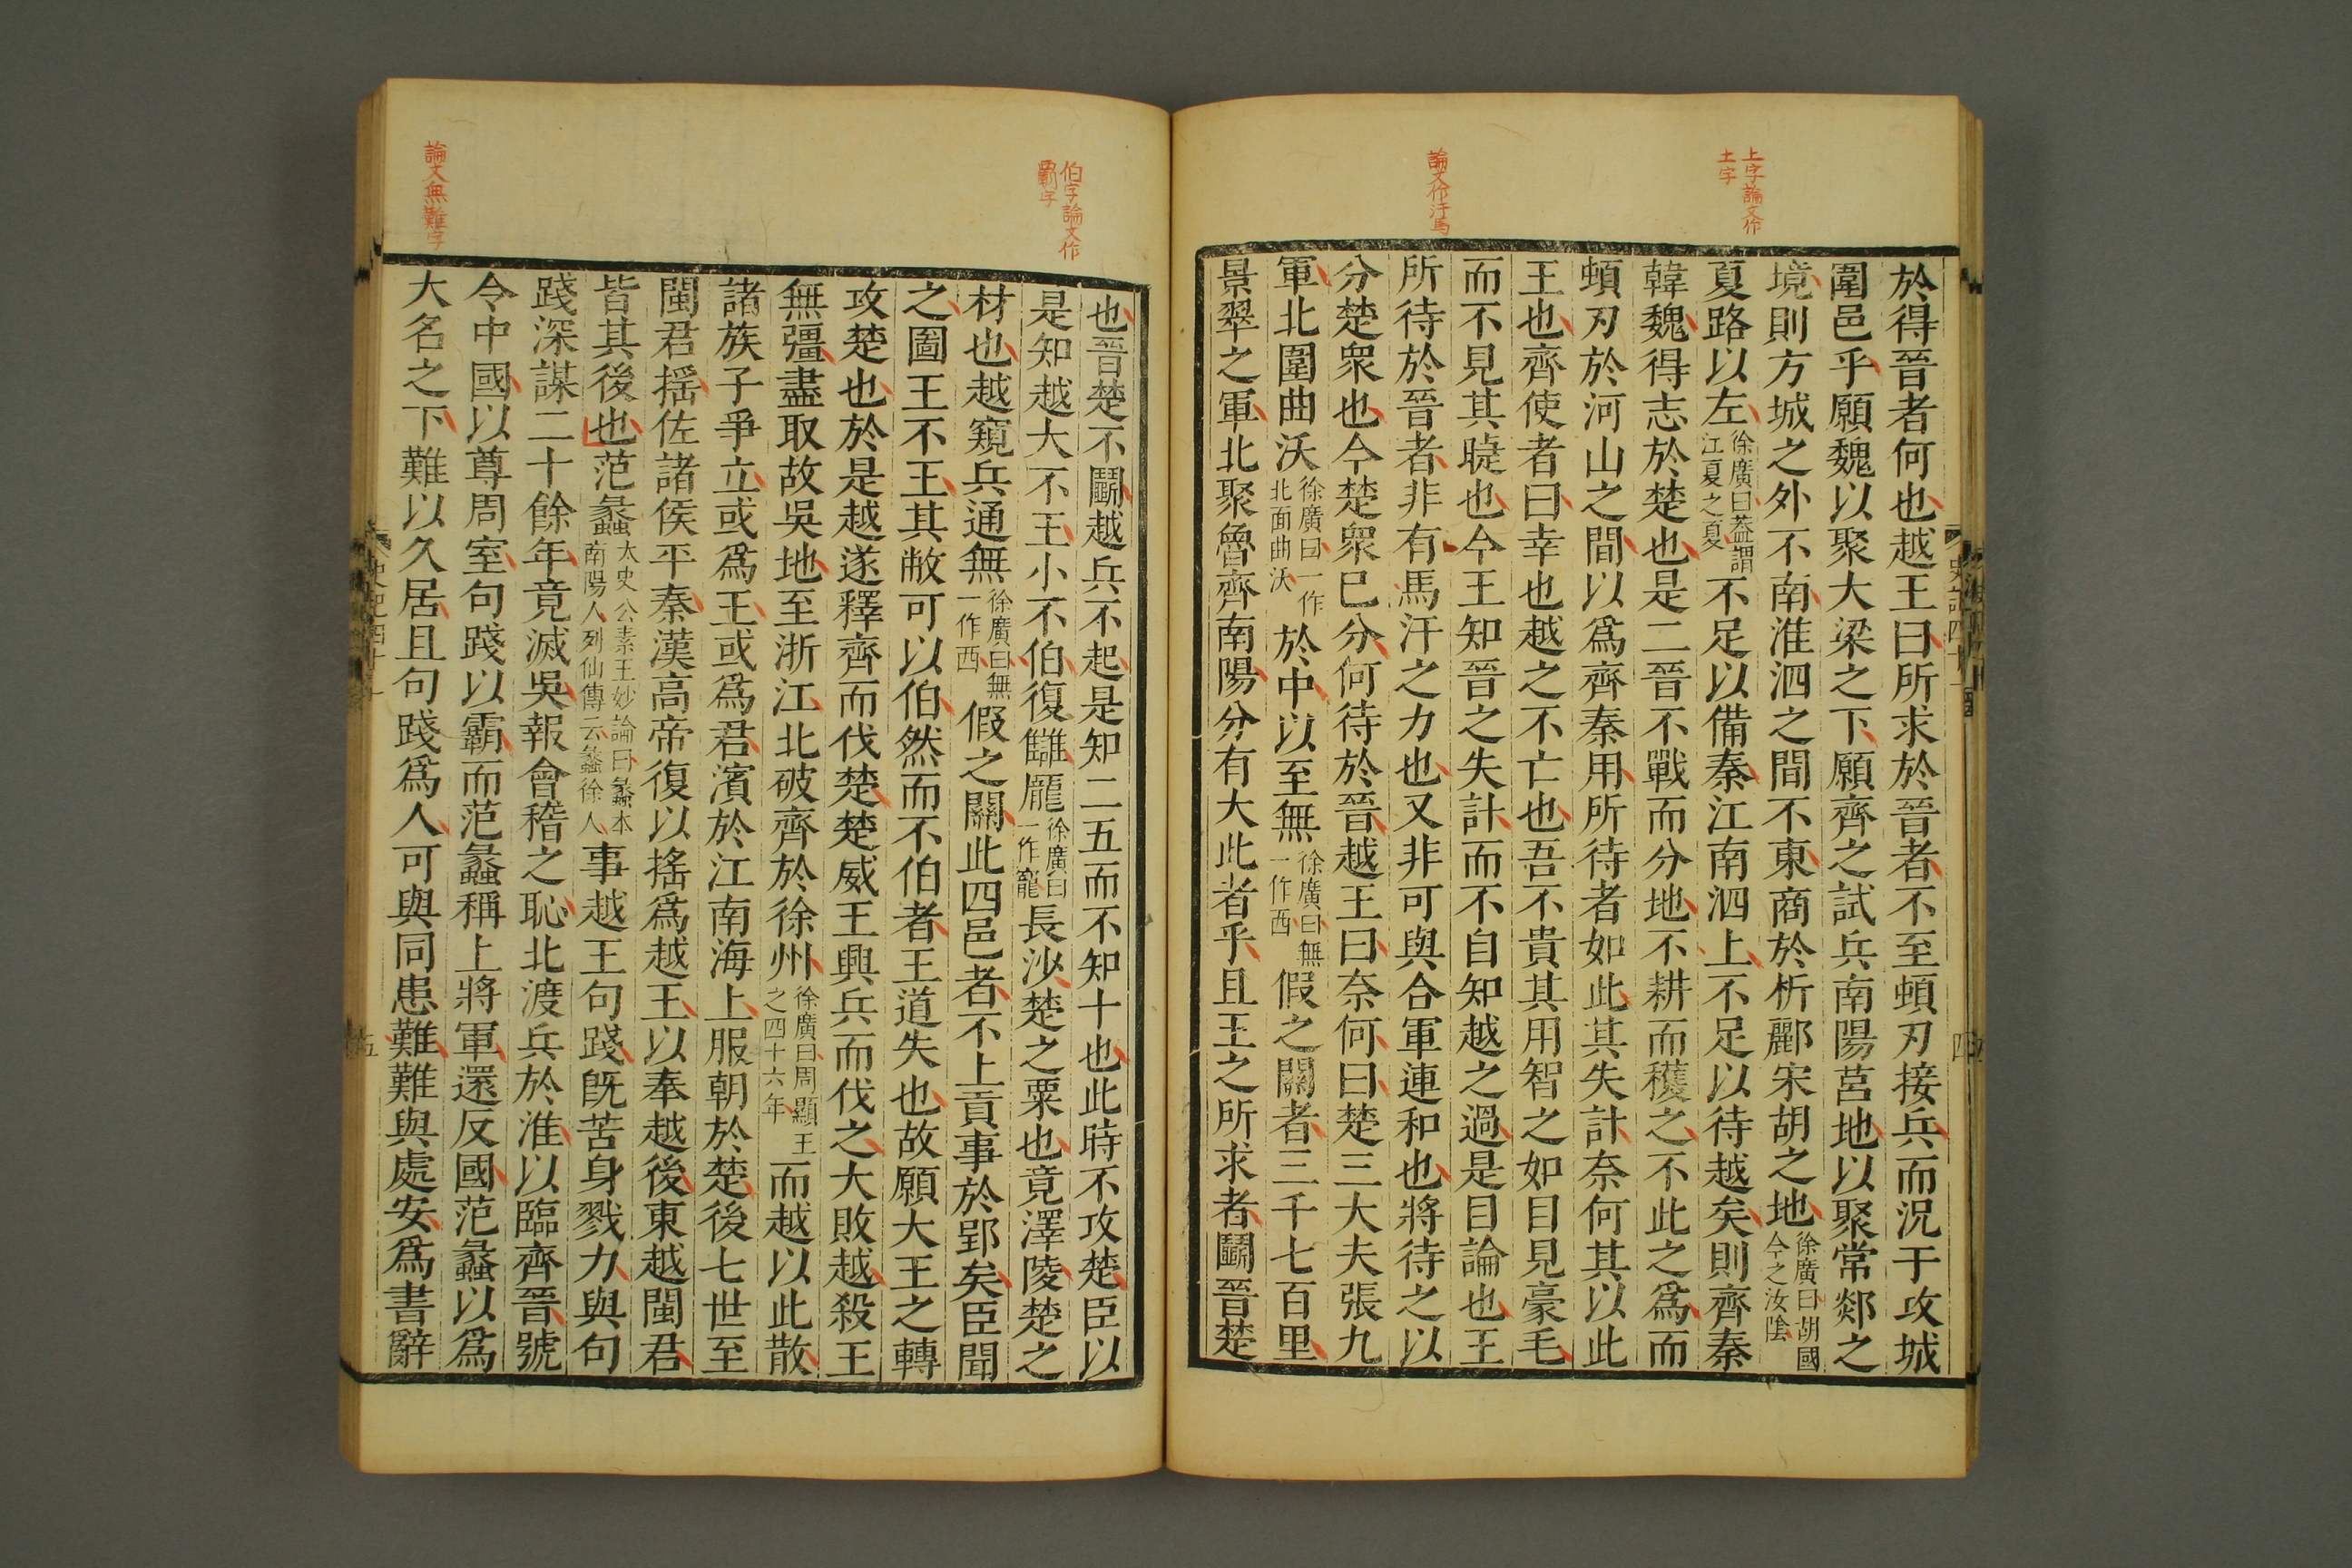 上字論文作
土字
論文作汗馬
於得晉者何也越王曰所求於晉者不至頓刃接兵而況于攻城
圍邑乎願魏以聚大梁之下願齊之試兵南陽莒地以聚常郯之
境則方城之外不南淮泗之間不東商於析酈宋胡之地徐廣曰胡國今之汝陰
夏路以左徐廣曰蓋謂江夏之夏不足以備秦江南泗上不足以待越矣則齊秦
韓魏得志於楚也是二晉不戰而分地不耕而穫之不此之爲而
頓刃於河山之間以爲齊秦用所待者如此其失計奈何其以此
王也齊使者曰幸也越之不亡也吾不貴其用智之如目見豪毛
而不見其睫也今王知晉之失計而不自知越之過是目論也王
所待於晉者非有馬汗之力也又非可與合軍連和也將待之以
分楚衆也今楚衆已分何待於晉越王曰奈何曰楚三大夫張九
軍北圍曲沃徐廣曰一作北面曲沃於中以至無徐廣曰無一作西假之關者三千七百里
景翠之軍北聚魯齊南陽分有大此者乎且王之所求者鬭晉楚
史記四十一
四
伯字論文作
霸字
論文無難字
也晉楚不鬭越兵不起是知二五而不知十也此時不攻楚臣以
是知越大不王小不伯復讎龐徐廣曰一作寵長沙楚之粟也竟澤陵楚之
材也越窺兵通無徐廣曰無一作西假之關此四邑者不上貢事於郢矣臣聞
之圖王不王其敝可以伯然而不伯者王道失也故願大王之轉
攻楚也於是越遂釋齊而伐楚楚威王興兵而伐之大敗越殺王
無彊盡取故吳地至浙江北破齊於徐州徐廣曰周顯王之四十六年而越以此散
諸族子爭立或爲王或爲君濱於江南海上服朝於楚後七世至
閩君搖佐諸侯平秦漢高帝復以搖爲越王以奉越後東越閩君
皆其後也范蠡太史公素王妙論曰蠡本南陽人列仙傳云蠡徐人事越王句踐既苦身戮力與句
踐深謀二十餘年竟滅吳報會稽之恥北渡兵於淮以臨齊晉號
令中國以尊周室句踐以霸而范蠡稱上將軍還反國范蠡以爲
大名之下難以久居且句踐爲人可與同患難難與處安爲書辭
史記四十一
五